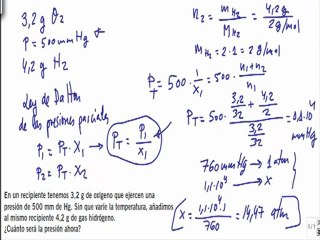 3,2 g O₂
P = 500 mm Hg
4,2 g H₂
Ley de Dalton
de las presiones parciales
P₁ = P_T · X₁ → P_T = P₁ / x₁
P₂ = P_T · X₂
n₂ = m_H₂ / M_H₂ = 4,2 g / 2 g/mol
M_H₂ = 2 · 1 = 2 g/mol
P_T = 500 · 1/x₁ = 500 · (n₁ + n₂) / n₁
P_T = 500 · (3,2/32 + 4,2/2) / (3,2/32) = 1,1 · 10⁴ mm Hg
760 mm Hg → 1 atm
1,1 · 10⁴ → x
x = 1,1 · 10⁴ · 1 / 760 = 14,47 atm
En un recipiente tenemos 3,2 g de oxígeno que ejercen una
presión de 500 mm de Hg. Sin que varíe la temperatura, añadimos
al mismo recipiente 4,2 g de gas hidrógeno.
¿Cuánto será la presión ahora?